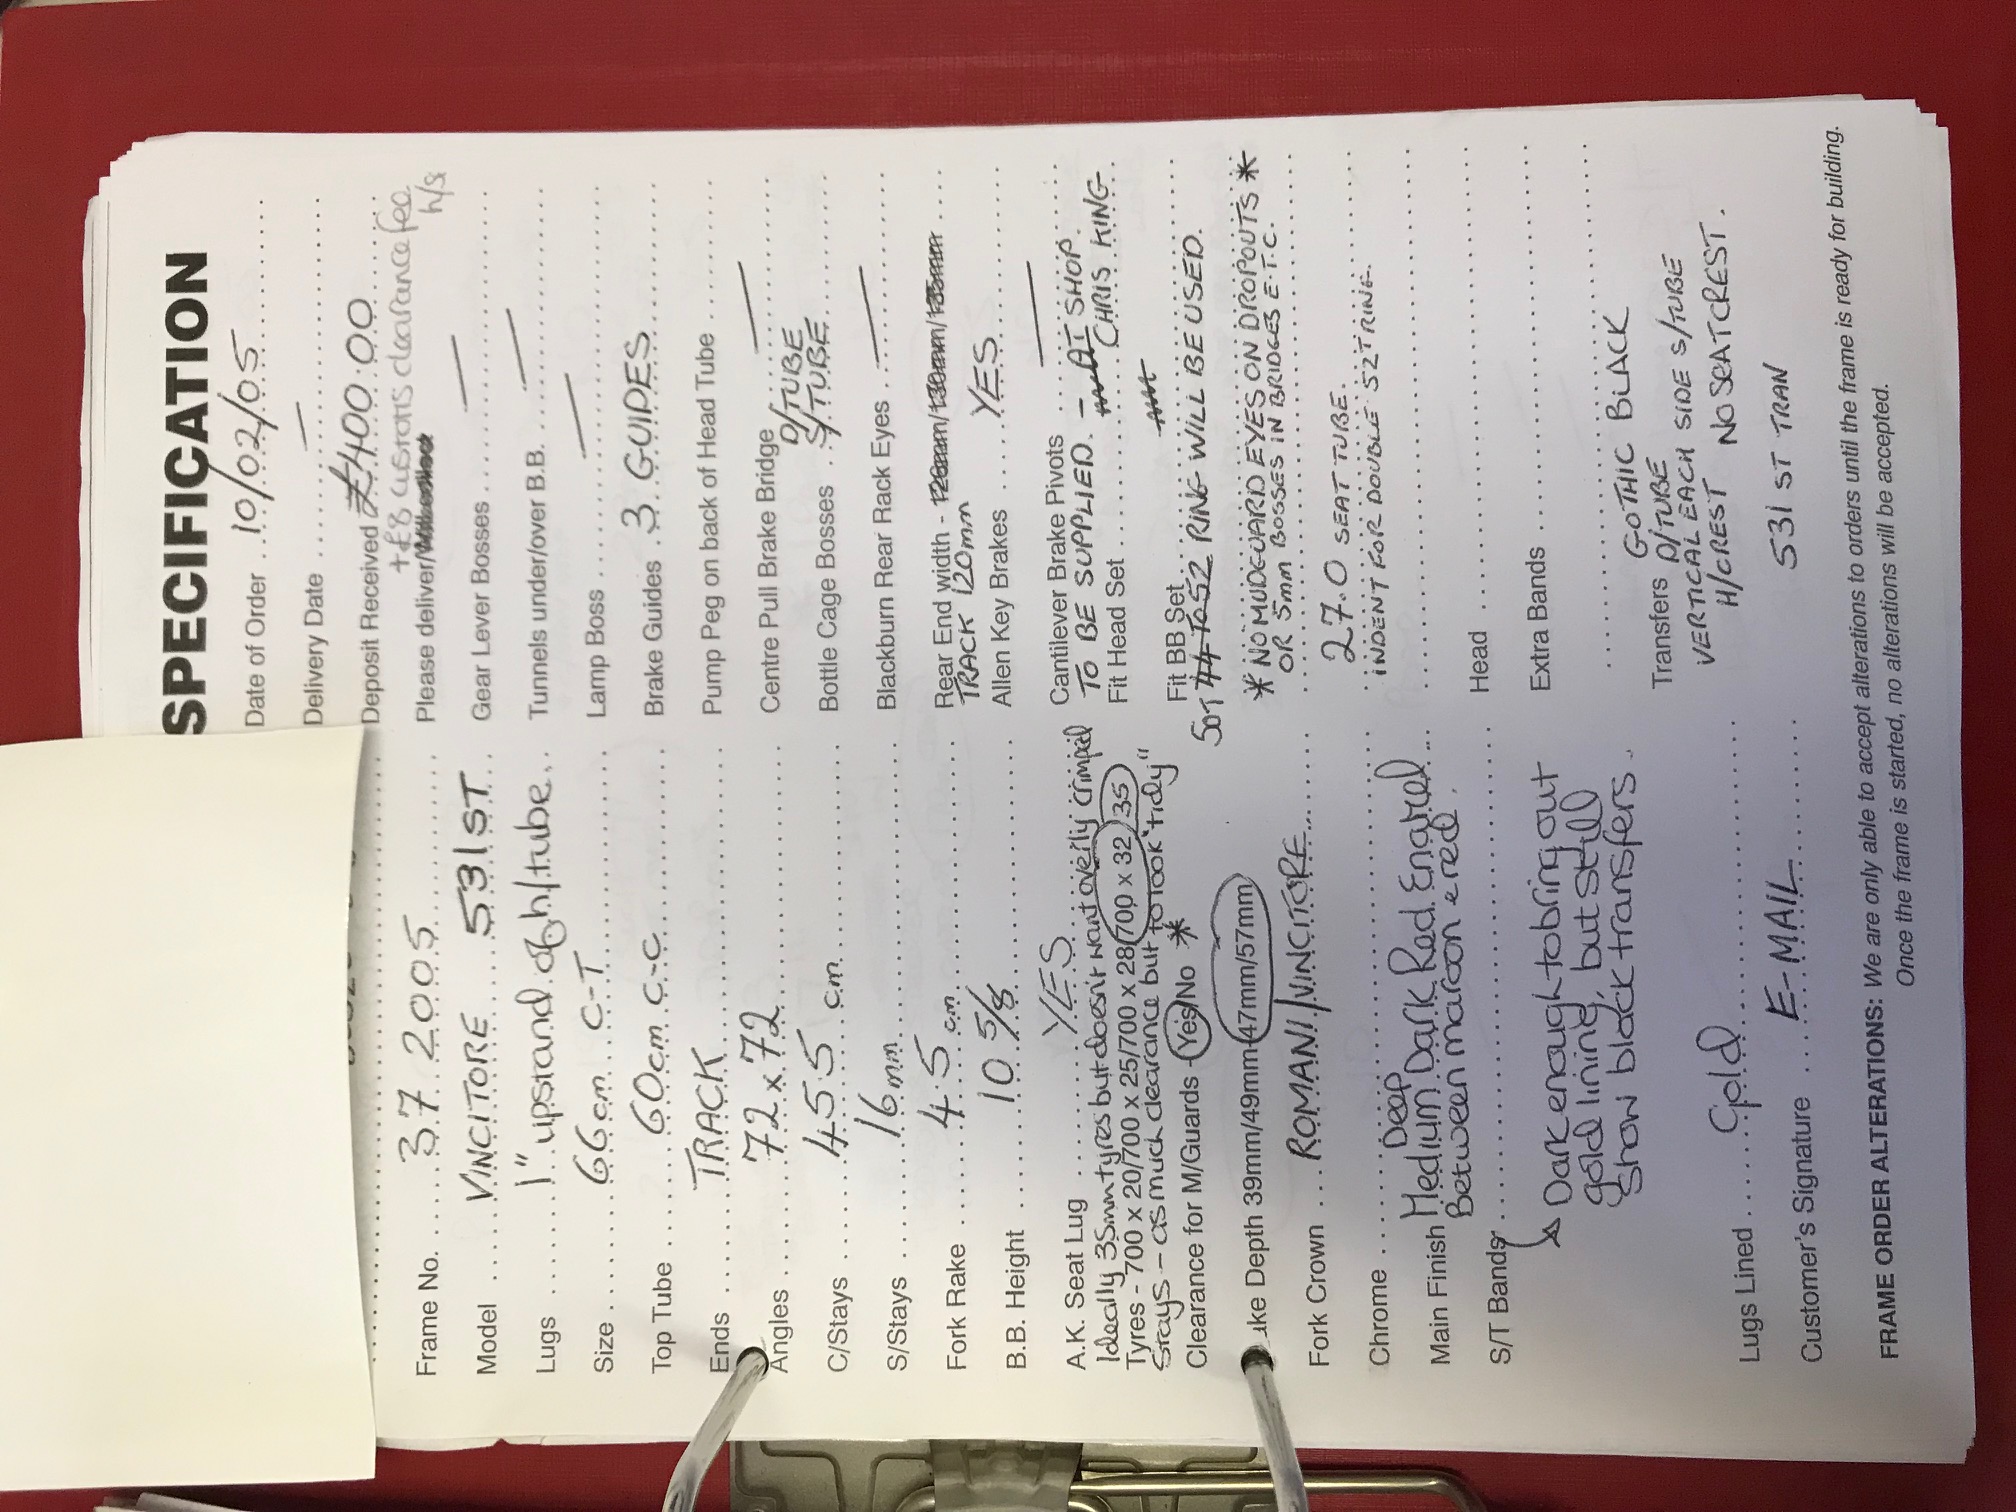 SPECIFICATION
Frame No. 37 2005
Model VINCITORE 531ST
Lugs 1" upstand of h/tube
Size 66cm C-T
Top Tube 60cm C-C
Ends TRACK
Angles 72 x 72
C/Stays 45.5 cm
S/Stays 16mm
Fork Rake 4.5 cm
B.B. Height 10 5/8
A.K. Seat Lug YES
Ideally 35mm tyres but doesn't want overly crimped
Tyres - 700 x 20/700 x 25/700 x 28/700 x 32/35
Stays - as much clearance but to look "tidy"
Clearance for M/Guards - Yes/No *
ke Depth 39mm/49mm-47mm/57mm
Fork Crown ROMANI/VINCITORE
Chrome
Deep
Main Finish Medium Dark Red Enamel
Between maroon & red.
S/T Bands
Dark enough to bring out
gold lining, but still
show black transfers.
Lugs Lined Gold
Customer's Signature E-MAIL
Date of Order 10/02/05
Delivery Date —
Deposit Received £400.00
+£8 customs clearance fee
h/s
Please deliver/
Gear Lever Bosses —
Tunnels under/over B.B. —
Lamp Boss —
Brake Guides 3 GUIDES
Pump Peg on back of Head Tube
Centre Pull Brake Bridge —
D/TUBE
Bottle Cage Bosses S/TUBE
Blackburn Rear Rack Eyes —
Rear End width - 126mm/130mm/135mm
TRACK 120mm
Allen Key Brakes YES
Cantilever Brake Pivots —
TO BE SUPPLIED - AT SHOP.
Fit Head Set CHRIS KING
Fit BB Set
50T 44 TO 52 RING WILL BE USED.
* NO MUDGUARD EYES ON DROPOUTS *
OR 5mm BOSSES IN BRIDGES E.T.C.
27.0 SEAT TUBE.
INDENT FOR DOUBLE 52T RING.
Head
Extra Bands
GOTHIC BLACK
Transfers D/TUBE
VERTICAL EACH SIDE S/TUBE
H/CREST NO SEATCREST.
531 ST TRAN
FRAME ORDER ALTERATIONS: We are only able to accept alterations to orders until the frame is ready for building.
Once the frame is started, no alterations will be accepted.